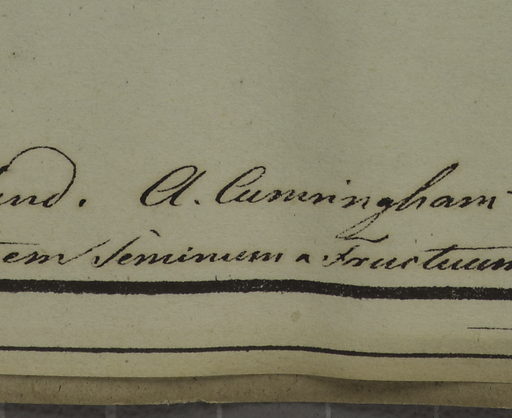 und. A. Cunningham
tem Seminum a Fructuum